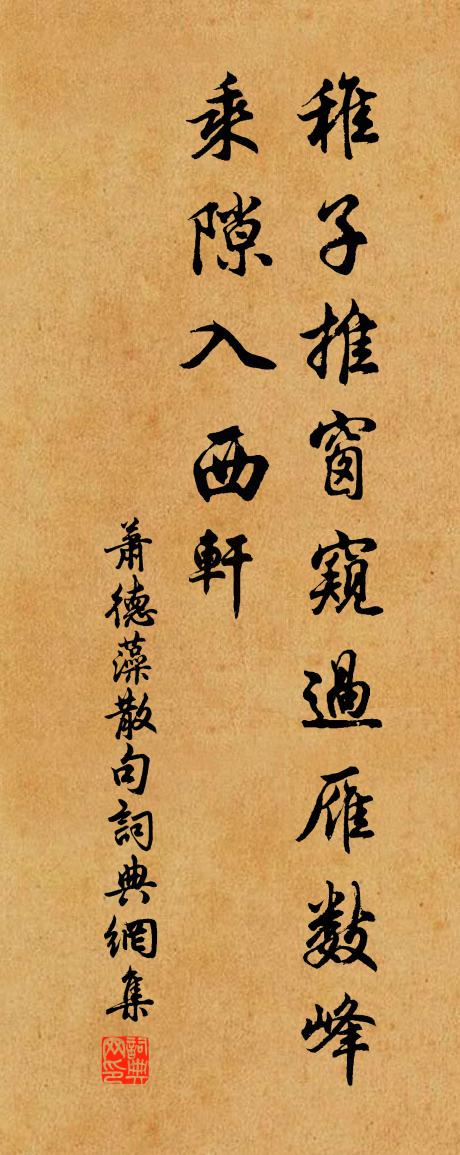 稚子推窗窺過雁數峰
乘隙入西軒
蕭德藻散句詞典網集
詞典網印